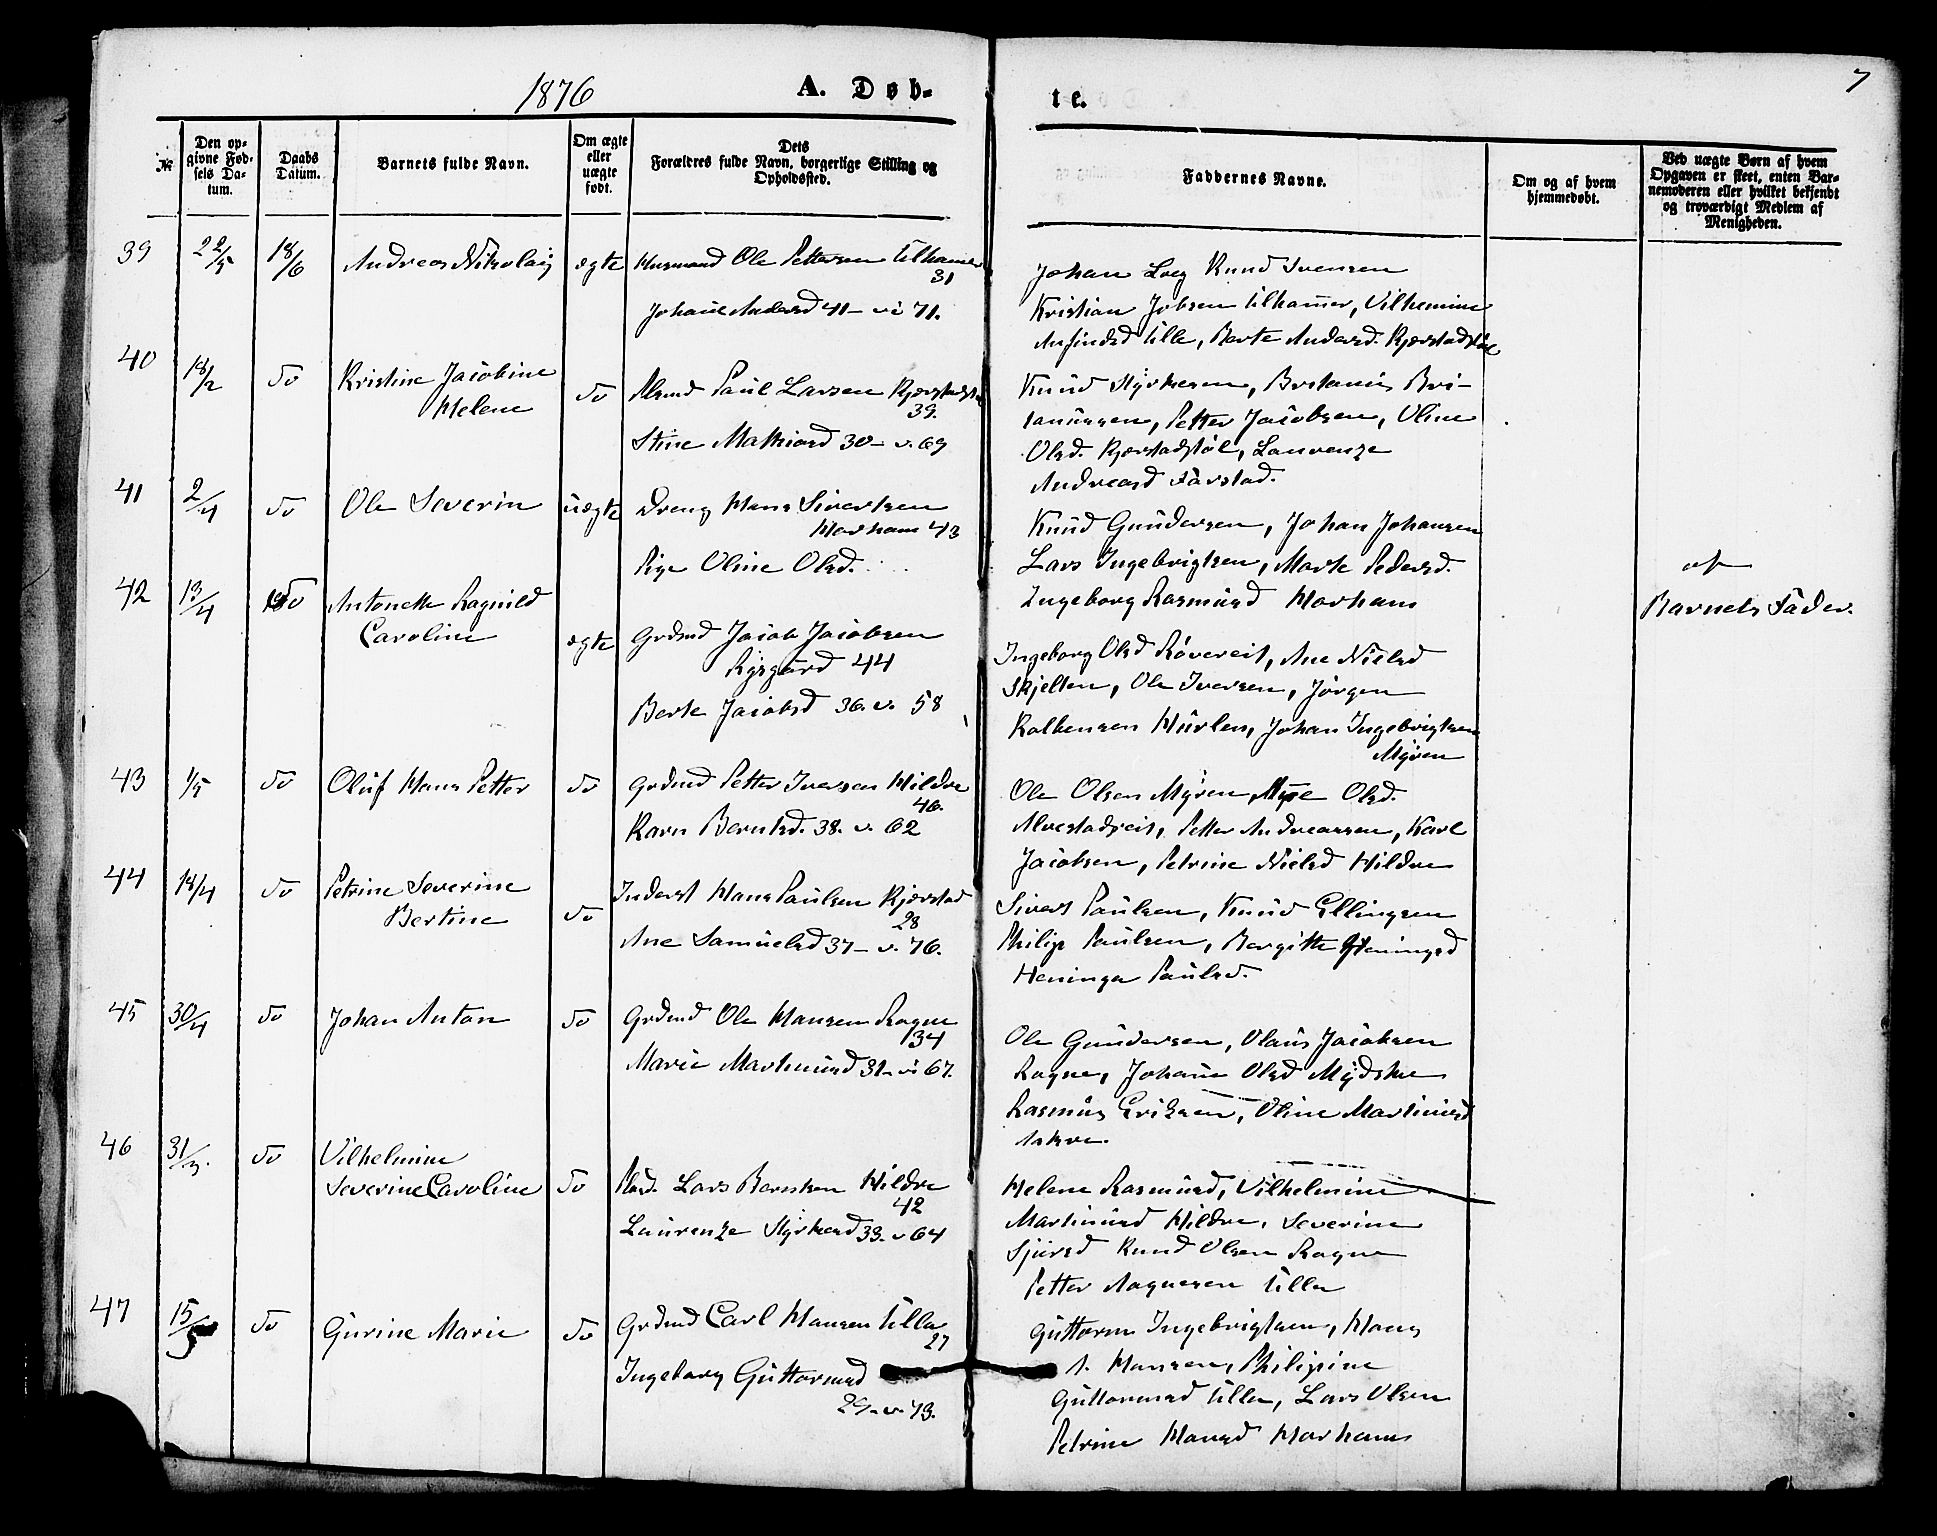 1876
A. Døb-
te.
7
№
Den op-
givne Fød-
sels Da-
tum.
Daabs
Datum.
Barnets fulde Navn.
Om ægte
eller
uægte
født.
Dets
Forældres fulde Navn, borgerlige Stilling og
Opholdssted.
Faddernes Navne.
Om og af hvem
hjemmedøbt.
Ved uægte Børn af hvem
Opgaven er skeet, enten Bar-
nemoderen eller hvilket bekjendt
og troværdigt Medlem af
Menigheden.
39 22/5 18/6 Andreas Nikolaij ægte Husmand Ole Pettersen Ulhammer
31
Johane Andersd 41 - v. 71.
Johan Knud Svensen
Kristian Jobsen Ulhammer, Vilhemine
Anfindsd Ulla, Berte Andersd. Kjærstadstøl
40 18/2 do Kristine Jacobine
Helene
do Paul Larsen Kjærstadstøl
39.
Stine Mathiasd 30 - v. 69
Knud Styrkersen, Bri-
tanussen, Petter Jacobsen, Oline
Olsd. Kjærstadstøl, Laurenze
Andreasd Farstad.
41 2/4 do Ole Severin uægte Dreng Hans Sivertsen
Harham 43
Pige Oline Olsd.
Knud Gundersen, Johan Johansen
Lars Ingebrigtsen, Marte Pedersd.
Ingeborg Rasmusd Harham
af
Barnets Fader.
42 13/4 do Antonette Ragnild
Caroline
ægte Grdmd Jacob Jacobsen
Rysgård 44
Berte Jacobsd 36. v. 58
Ingeborg Olsd Røvereit, Ane Nielsd
Skjelten, Ole Iversen, Jørgen
Kolbensen Hurlen, Johan Ingebrigtsen
Myren
43 1/5 do Oluf Hans Petter do Grdmd Petter Iversen Hildre
46.
Karn Berntsd. 38. v. 62
Ole Olsen Myren, Olsd.
Alvestadreit, Petter Andreassen, Karl
Jacobsen, Petrine Nielsd Hildre
44 18/4 do Petrine Severine
Bertine
do Inderst Hans Paulsen Kjærstad
28
Ane Samuelsd 37 - v. 76.
Sivert Paulsen, Knud Ellingsen
Philip Paulsen, Bergitte Heningsd
Heninga Paulsd.
45 30/4 do Johan Anton do Grdmd Ole Hansen Rogne
34
Marie Martinusd 31 - v. 67.
Ole Gundersen, Olaus Jacobsen
Rogne, Johane Olsd Mydske
Rasmus Eriksen, Oline Martinusd
46 31/3. do Vilhelmine
Severine Caroline do Lars Berntsen Hildre
42
Laurenze Styrkersd 33. v 64
Helene Rasmusd, Vilhelmine
Martinusd Hildre, Severine
Sjursd Knud Olsen Rogne
Petter Aagnesen Ulla
47 15/5 do Gurine Marie do Grdmd Carl Hansen Ulla
27
Ingeborg Guttormsd
29 - v. 73.
Guttorm Ingebrigtsen, Hans
A. Hansen, Philipine
Guttormsd Ulla, Lars Olsen
Petrine Hansd Harham